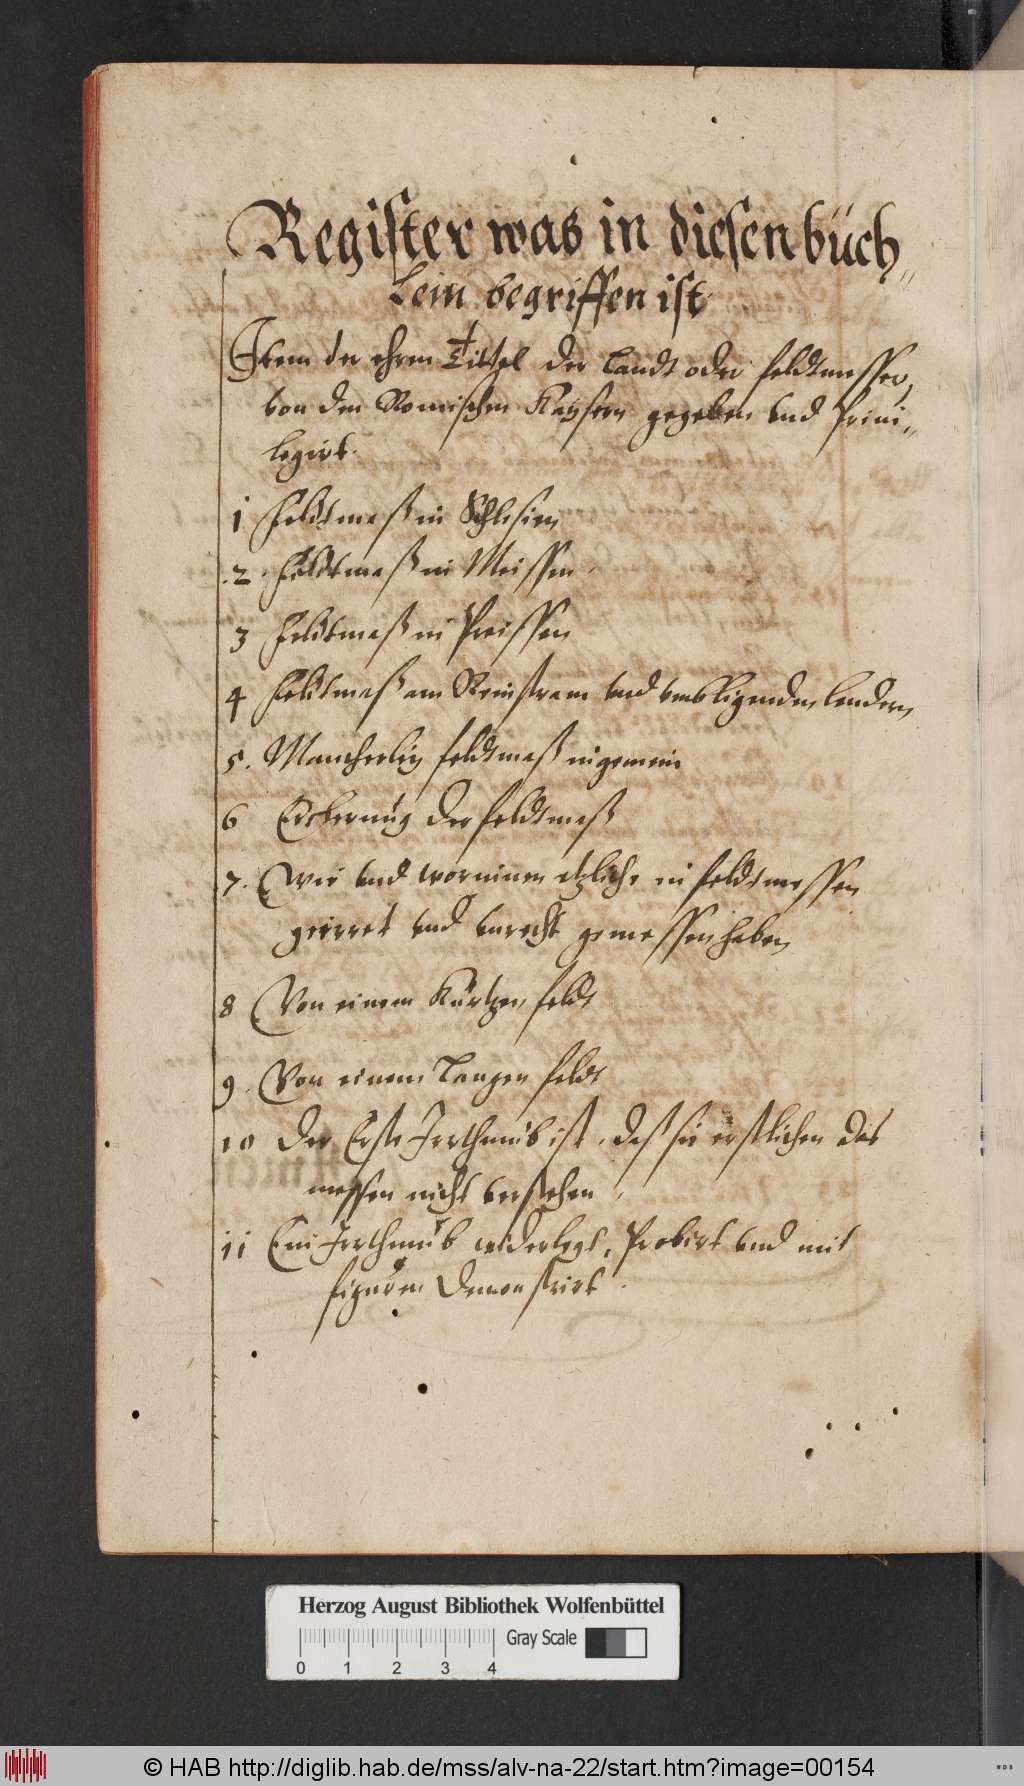 Register was in diesen büch„
lein begriffen ist
Item der ehren Tittel der Landt oder feldtmesser,
von den Romischen Kaÿsern gegeben vnd Priui„
legirt.
1 Feldtmaß in Schlesien
.2. Feldtmaß in Meissen.
3 Feldtmaß in Preissen
4 Feldtmaß am Reinstram vnd vmbligenden lendern
5. Mancherleÿ feldtmaß in gemein
6 der feldtmaß
7. Wie vnd worinnen etzliche in feldtmessen
geirret vnd vnrecht gemessen haben
8 Von einem Kurtzen feldt
9. Von einem Langen feldt
10 Der Erste Irrthumb ist, daß sie erstlichen das
messen nicht verstehen
11 Ein Irrthumb widerlegt, Probirt vnd mit
figuren Demonstrirt.
Herzog August Bibliothek Wolfenbüttel
Gray Scale
0 1 2 3 4
© HAB http://diglib.hab.de/mss/alv-na-22/start.htm?image=00154